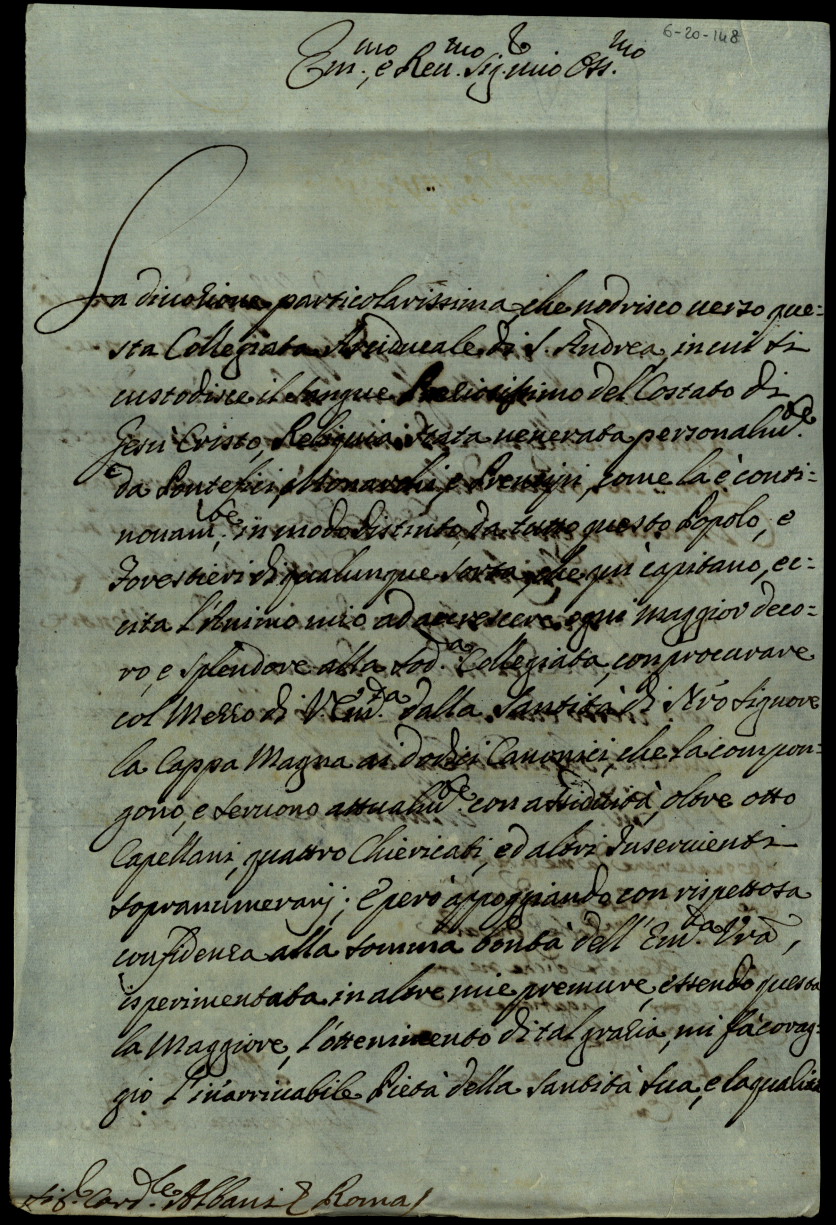 6-20-148
Em.mo, e Reu.mo Sig.r mio Oss.mo
La diuozione particolarissima, che nodrisco uerso que=
sta Collegiata Arciducale di S. Andrea, in cui si
custodisce il Sangue Preziosissimo del Costato di
Gesù Cristo, Reliquia stata uenerata personalm.te
da Pontefici, Monarchi, e Prencipi, come la è conti=
nouam.te in modo distinto da tutto questo Popolo, e
Forestieri di qualunque sorta, che qui capitano, ec=
cita l'Animo mio ad accrescere ogni maggior deco=
ro, e splendore alla sod.a Collegiata, con procurare
col Mezzo di V. Em.za dalla Santità di Nro Signore
la Cappa Magna ai dodici Canonici, che la compon=
gono, e seruono attualm.te con assiduità, oltre otto
Capellani, quattro Chiericati, ed altri Inseruienti
sopranumerarj; E però appoggiando con rispettosa
confidenza alla somma bontà dell'Em.za Vra,
isperimentata in altre mie premure, essendo questa
la Maggiore, l'ottenimento di tal grazia, mi fà corag=
gio l'inarriuabile Pietà della Santità Sua, e la qualità
Sig.r Card.le Albani Roma